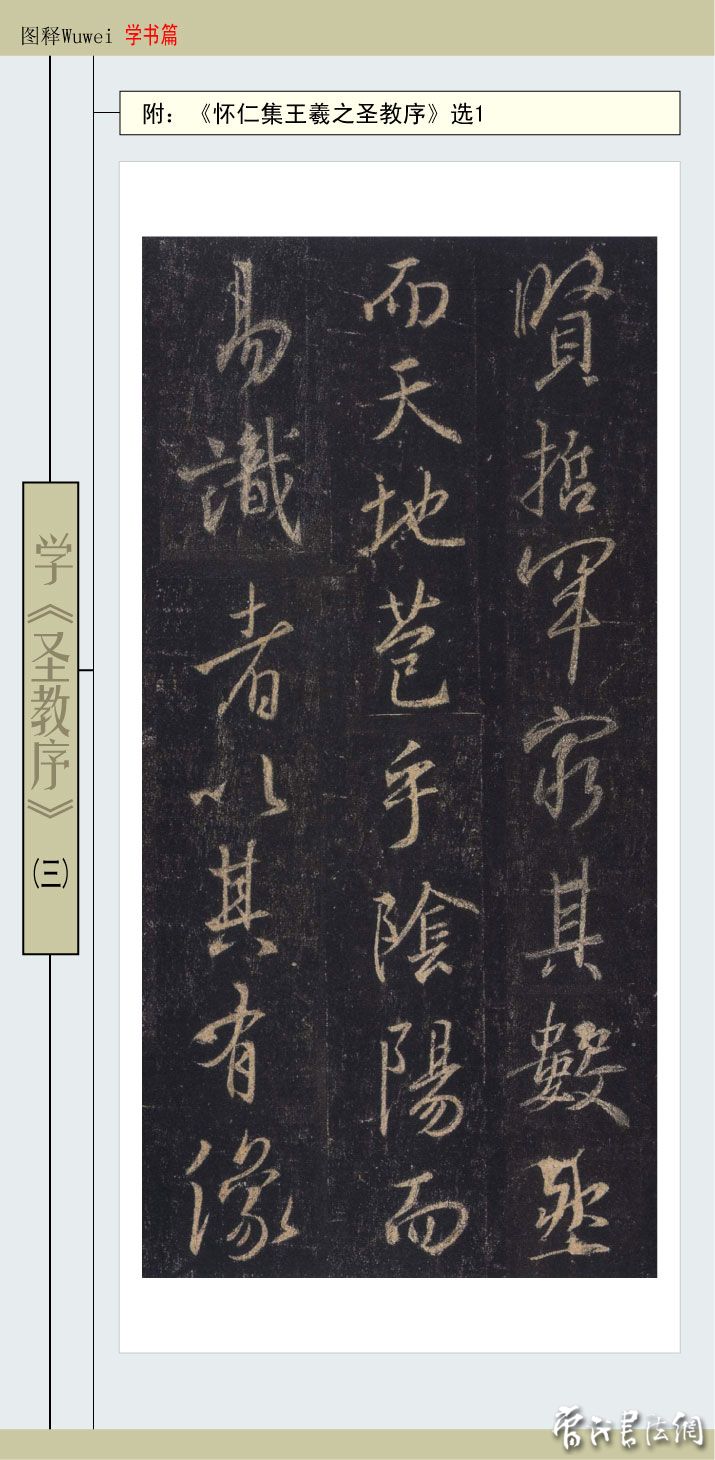 图释Wuwei 学书篇
附：《怀仁集王羲之圣教序》选1
賢哲罕窮其數然
而天地苞乎陰陽而
易識者以其有像
学《圣教序》(三)